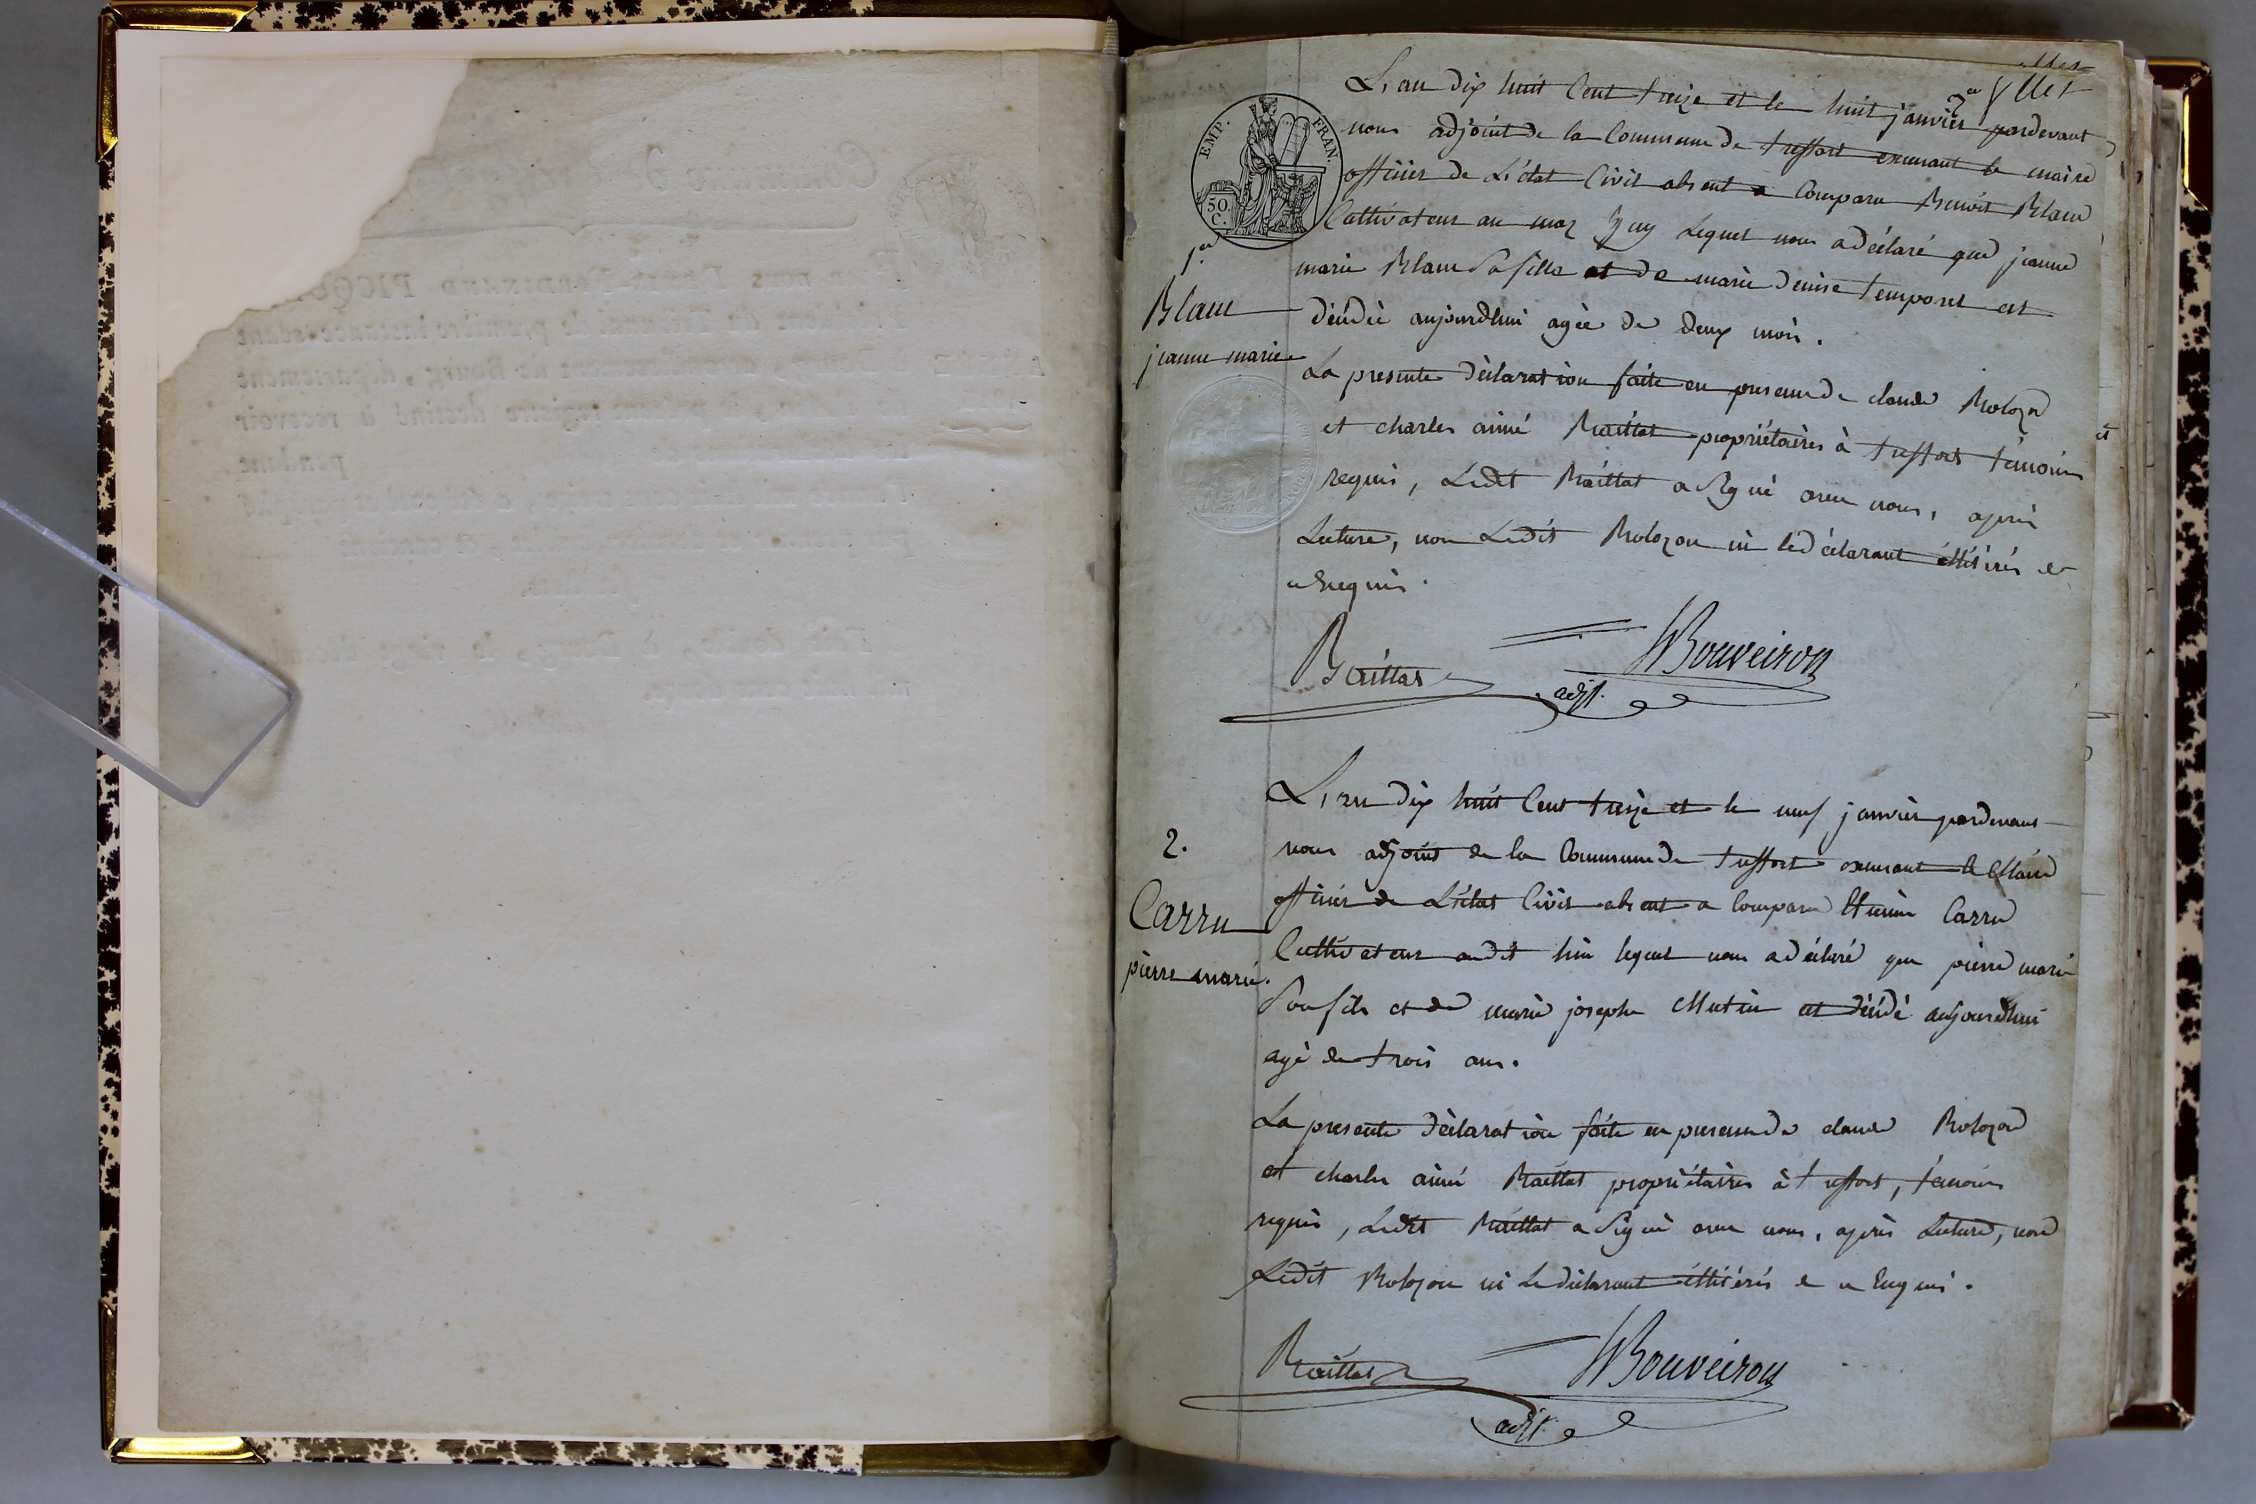 EMP. FRAN.
50. C.
1.er
Blanc
jeanne marie
L'an dix huit Cent treize et le huit janvier pardevant
nous adjoint de la Commune de treffort exercant le maire
officier de L'état Civil absent a Comparu Benoit Blanc
Cultivateur au maz Lequel nous a déclaré que jeanne
marie Blanc Sa fille et de marie denise temporel est
décédée aujourdhui agée de deux mois.
La presente déclaration faite en presence de claude Bolozon
et charles aimé Raillat propriétaires à treffort témoins
requis, Ledit Raillat a Signé avec nous, après
Lecture, non Ledit Bolozon ni le déclarant illitérés de
ce Enquis.
Raillat Bouveiron
adjt.
2.
Carru
pierre marie.
L'an dix huit Cent treize et le neuf janvier pardevant
nous adjoint de la Commune de treffort exercant le Maire
officier de L'état Civil absent a Comparu Etienne Carru
Cultivateur audit lieu lequel nous a déclaré que pierre marie
Son fils et de marie josephe Mutin est décédé aujourdhui
agé de trois ans.
La presente déclaration faite en presence de claude Bolozon
et charles aimé Raillat propriétaires à treffort, témoins
requis, Ledit Raillat a Signé avec nous, après Lecture, non
Ledit Bolozon ni Le déclarant illitérés de ce Enquis.
Raillat Bouveiron
adjt.